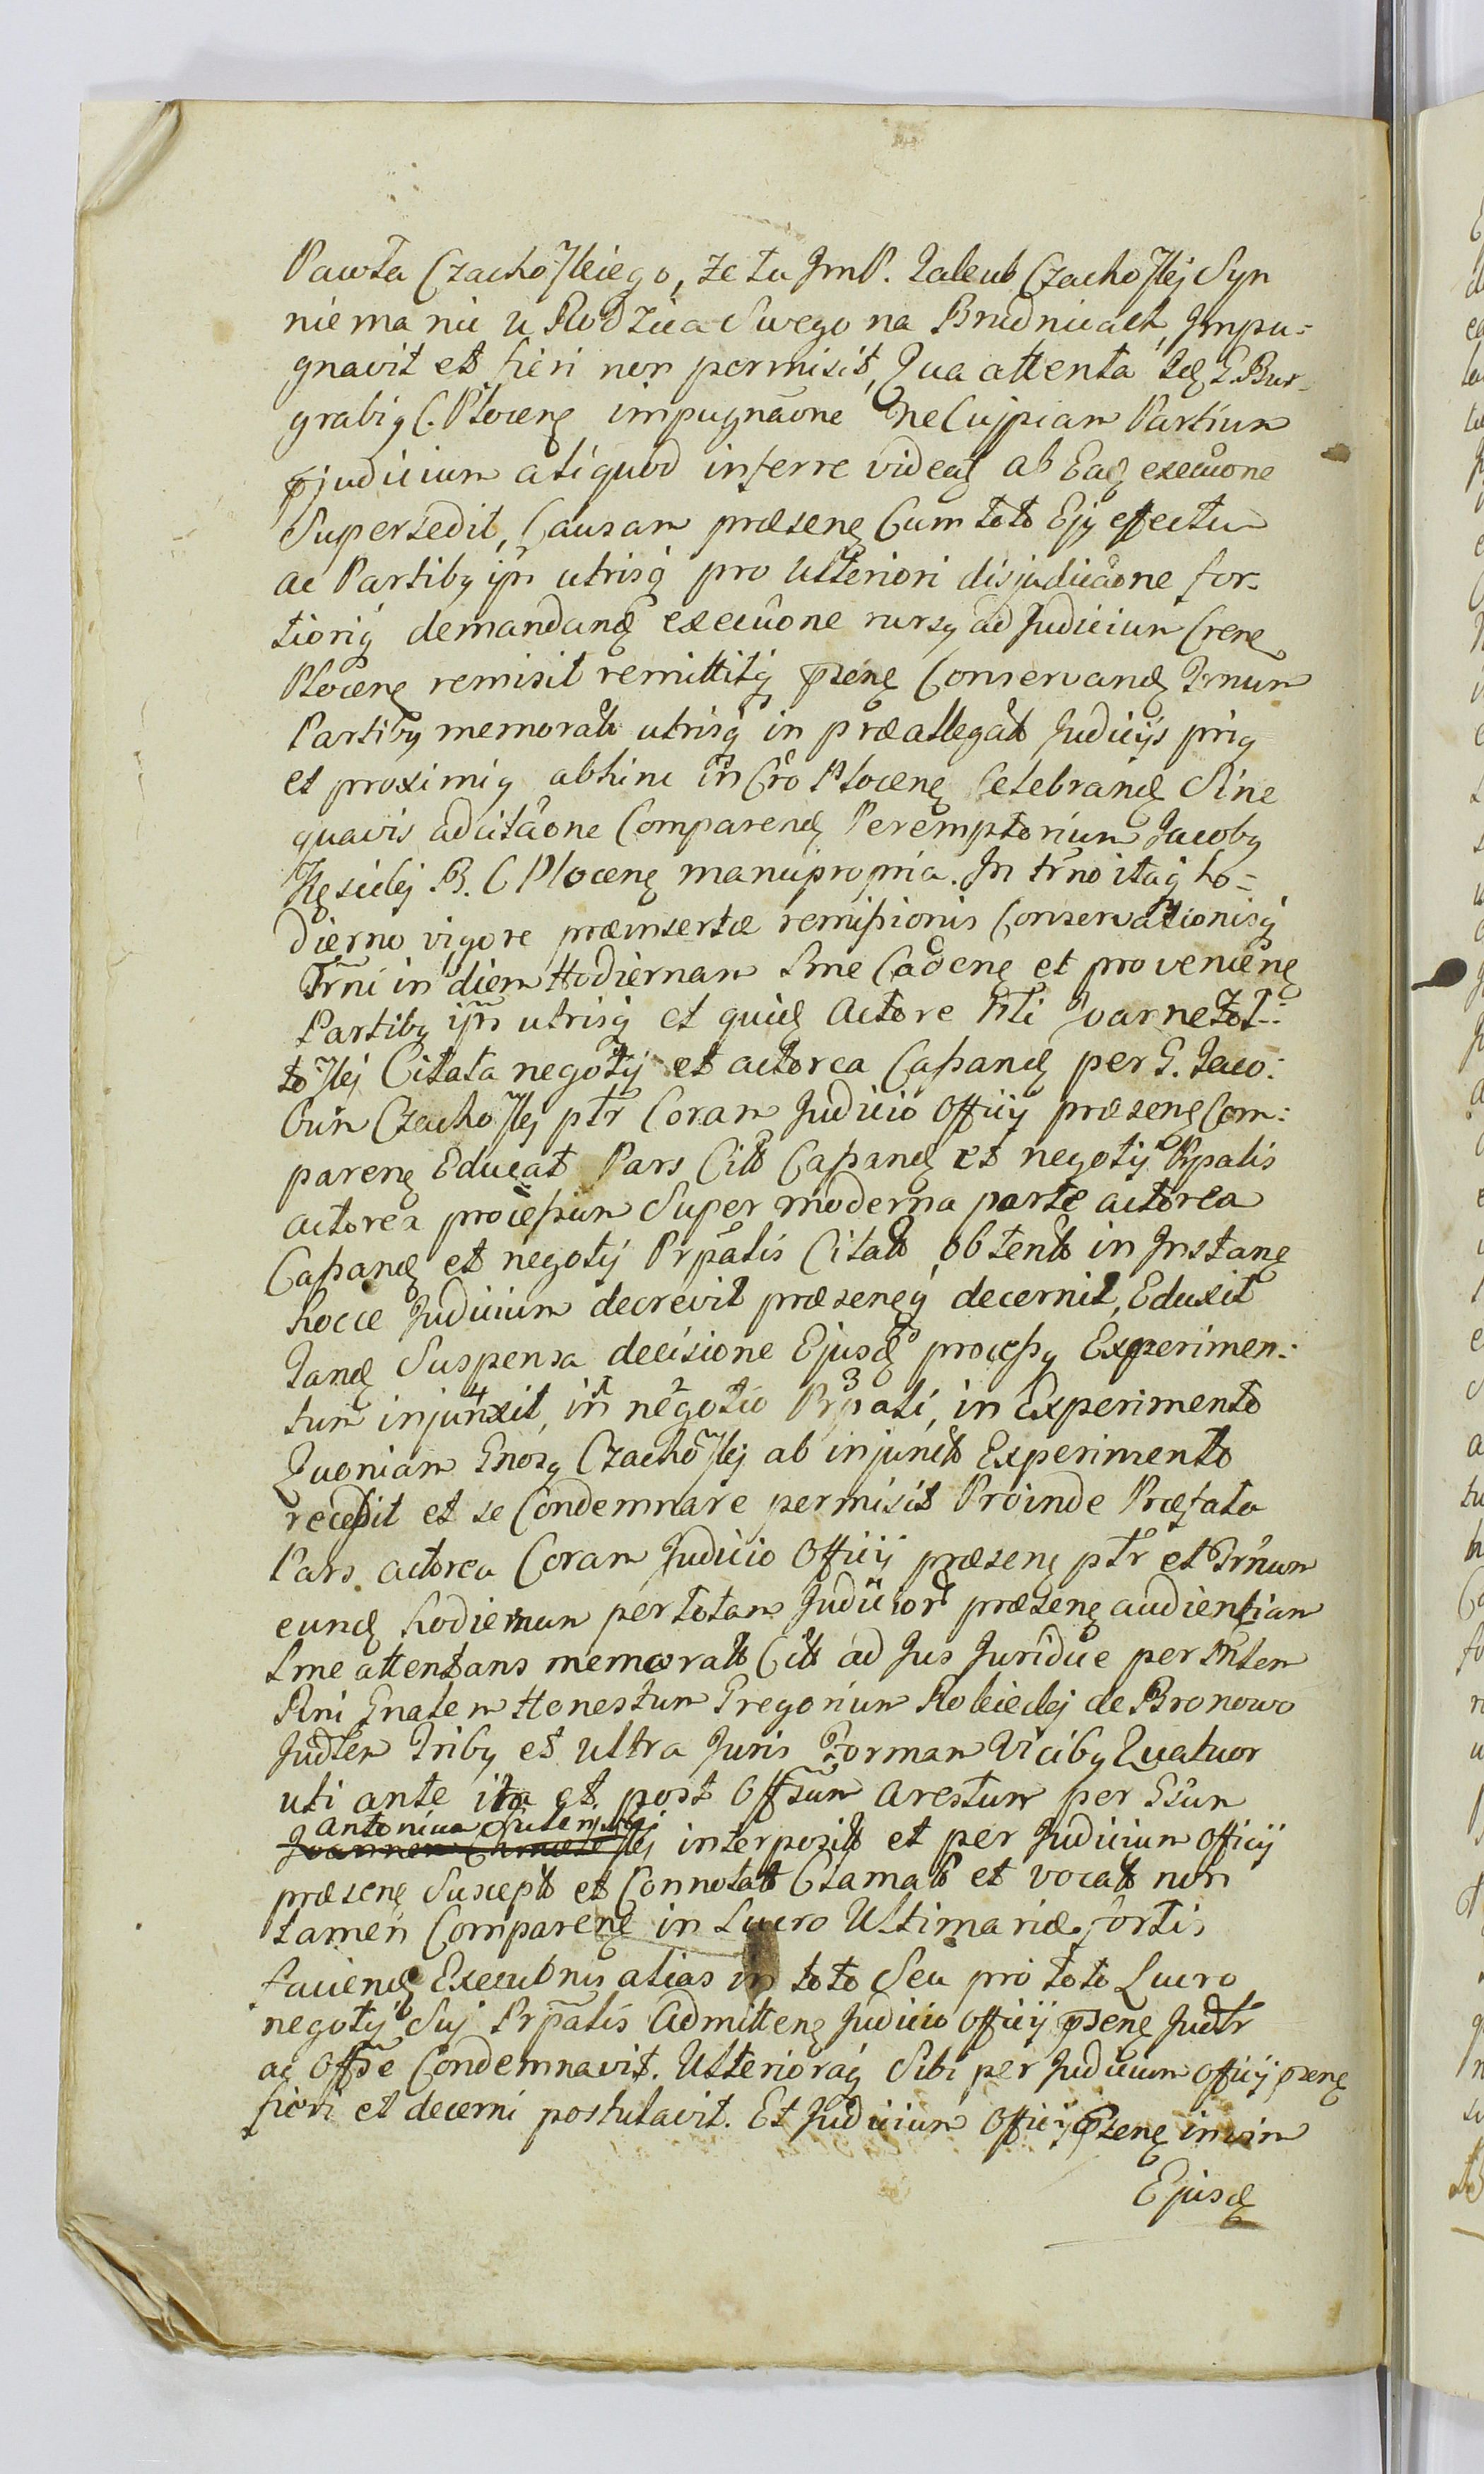 Pawła Czachoskiego, że tu JmP. Jakub Czachoskj Syn
niema nic u Rodzica Swego na Brudnicach, Jmpu=
gnavit et fieri non permisit, Qua attenta Ide G. Bur-
graby C. Plocens impugnaone ne Cuipiam Partium
pjudicium aliquod inferre videat ab Ead executione
Supersedit, Causam præsens Cum toto Ejus effectu
ac Partibus ipis utrisq pro Ulteriori disjudicaone for-
tioriq demandand executione rursus ad Judicium Crens
Plocens remisit remittitq psens Conservand Trnum
Partibus memorat utrisq in præallegat Judicijs priq
et proximis abhinc in Cro Plocens Celebrand Sine
quavis adcitaone Comparend Peremptorium Jacobus
Kęsickj B. C Plocens manupropria. Jn trno itaq ho=
dierno vigore præinsertæ remissionis Conservationisq
Trni in diem Hodiernam Lme Cadens et proveniens
Partibus ipis utrisq et quid Actore Nti
toskj Citata negotij et actorea Cassand per G. Jaco:
bum Czachoskj ptr Coram Judicio Officij præsens Com:
parens Educat Pars Citt Cassand et negotij Prpalis
actorea processum Super moderna parte actorea
Cassand et negotij Prpalis Citatt, obtentt in Jnstans
hocce Judicium decrevit præsensq decernit, Eduxit
Tand Suspensa decisione Ejusd processus Experimen:
tum injunxit, in negotio Prpali, in Experimento
4 1 2 3
Quoniam Gnosus Czachoskj ab injunctt Experimento
recessit et se Condemnare permisit Proinde Præfata
Pars actorea Coram Judicio Officij præsens ptr et Trnum
eund hodiernum per totam Judicior præsens audientiam
Lme attentans memoratt Citt ad Jus Juridice per Mtem
Rni Gnalem Honestum Gregorium Robieckj de Bronowo
Judlem Tribus et ultra Juris Formam Vicibus Quatuor
uti ante ita et post Offsum Arestum per Gsum
Antonium
interpositt et per Judicium Officij
præsens Susceptt et Connotatt Clamatt et vocatt non
tamen Comparens in Lucro Ultimariæ fortis
faciend Executionis alias in toto Seu pro toto Lucro
negotij Suj Prpalis Admittens Judicio Officij psens Judlr
ac Offse Condemnavit. Ulterioraq Sibi per Judicium Officij psens
fieri et decerni postulavit. Et Judicium Officij Psens in vim
Ejusd